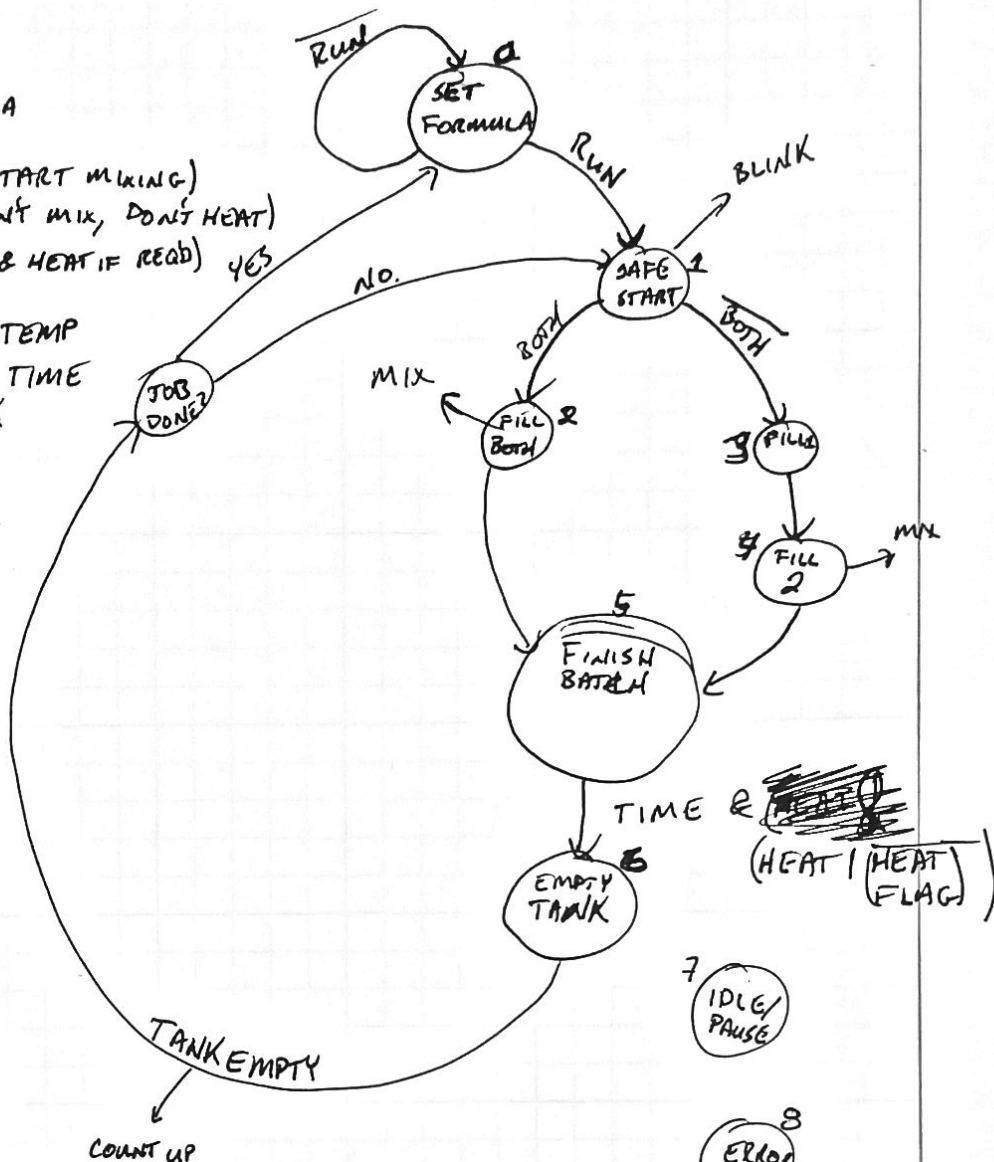 RUN
0
SET
FORMULA
A
RUN
BLINK
TART MIXING)
N'T MIX, DON'T HEAT)
& HEAT IF REQD)
YES
NO.
SAFE
START
1
TEMP
TIME
BOTH
BOTH
MIX
JOB
DONE?
FILL
BOTH
2
3
FILL1
4
FILL
2
MIX
5
FINISH
BATCH
TIME &
(HEAT | (HEAT
FLAG))
6
EMPTY
TANK
7
IDLE/
PAUSE
TANK EMPTY
COUNT UP
8
ERROR